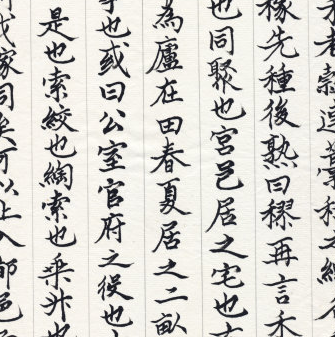 稼先種後熟曰穋再言禾
也同聚也宮邑居之宅也
為廬在田春夏居之二畝
事也或曰公室官府之役也
是也索絞也綯索也乘升也
家同矣可以上入都邑